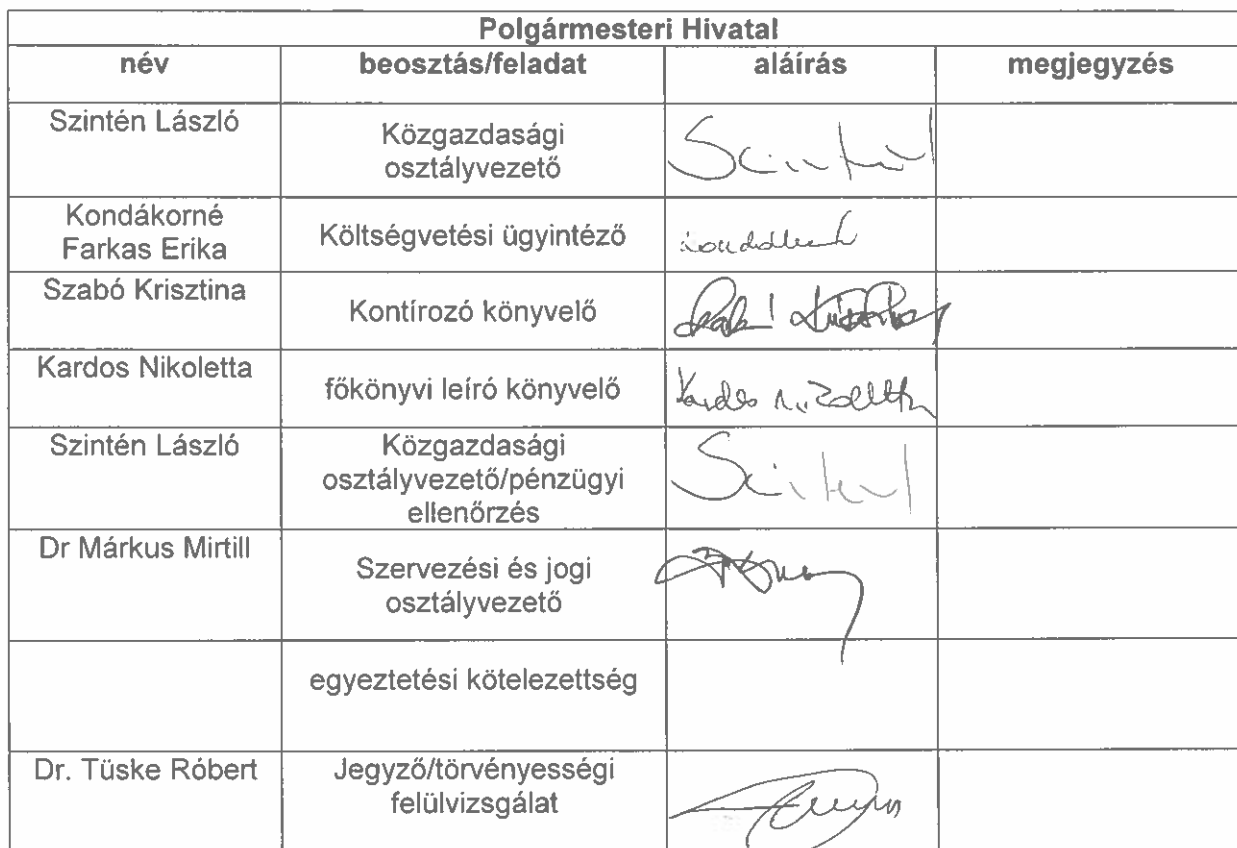 Polgármesteri Hivatal
név beosztás/feladat aláírás megjegyzés
Szintén László Közgazdasági
osztályvezető
Kondákorné
Farkas Erika Költségvetési ügyintéző
Szabó Krisztina Kontírozó könyvelő
Kardos Nikoletta főkönyvi leíró könyvelő Kardos Nikoletta
Szintén László Közgazdasági
osztályvezető/pénzügyi
ellenőrzés
Dr Márkus Mirtill Szervezési és jogi
osztályvezető
egyeztetési kötelezettség
Dr. Tüske Róbert Jegyző/törvényességi
felülvizsgálat